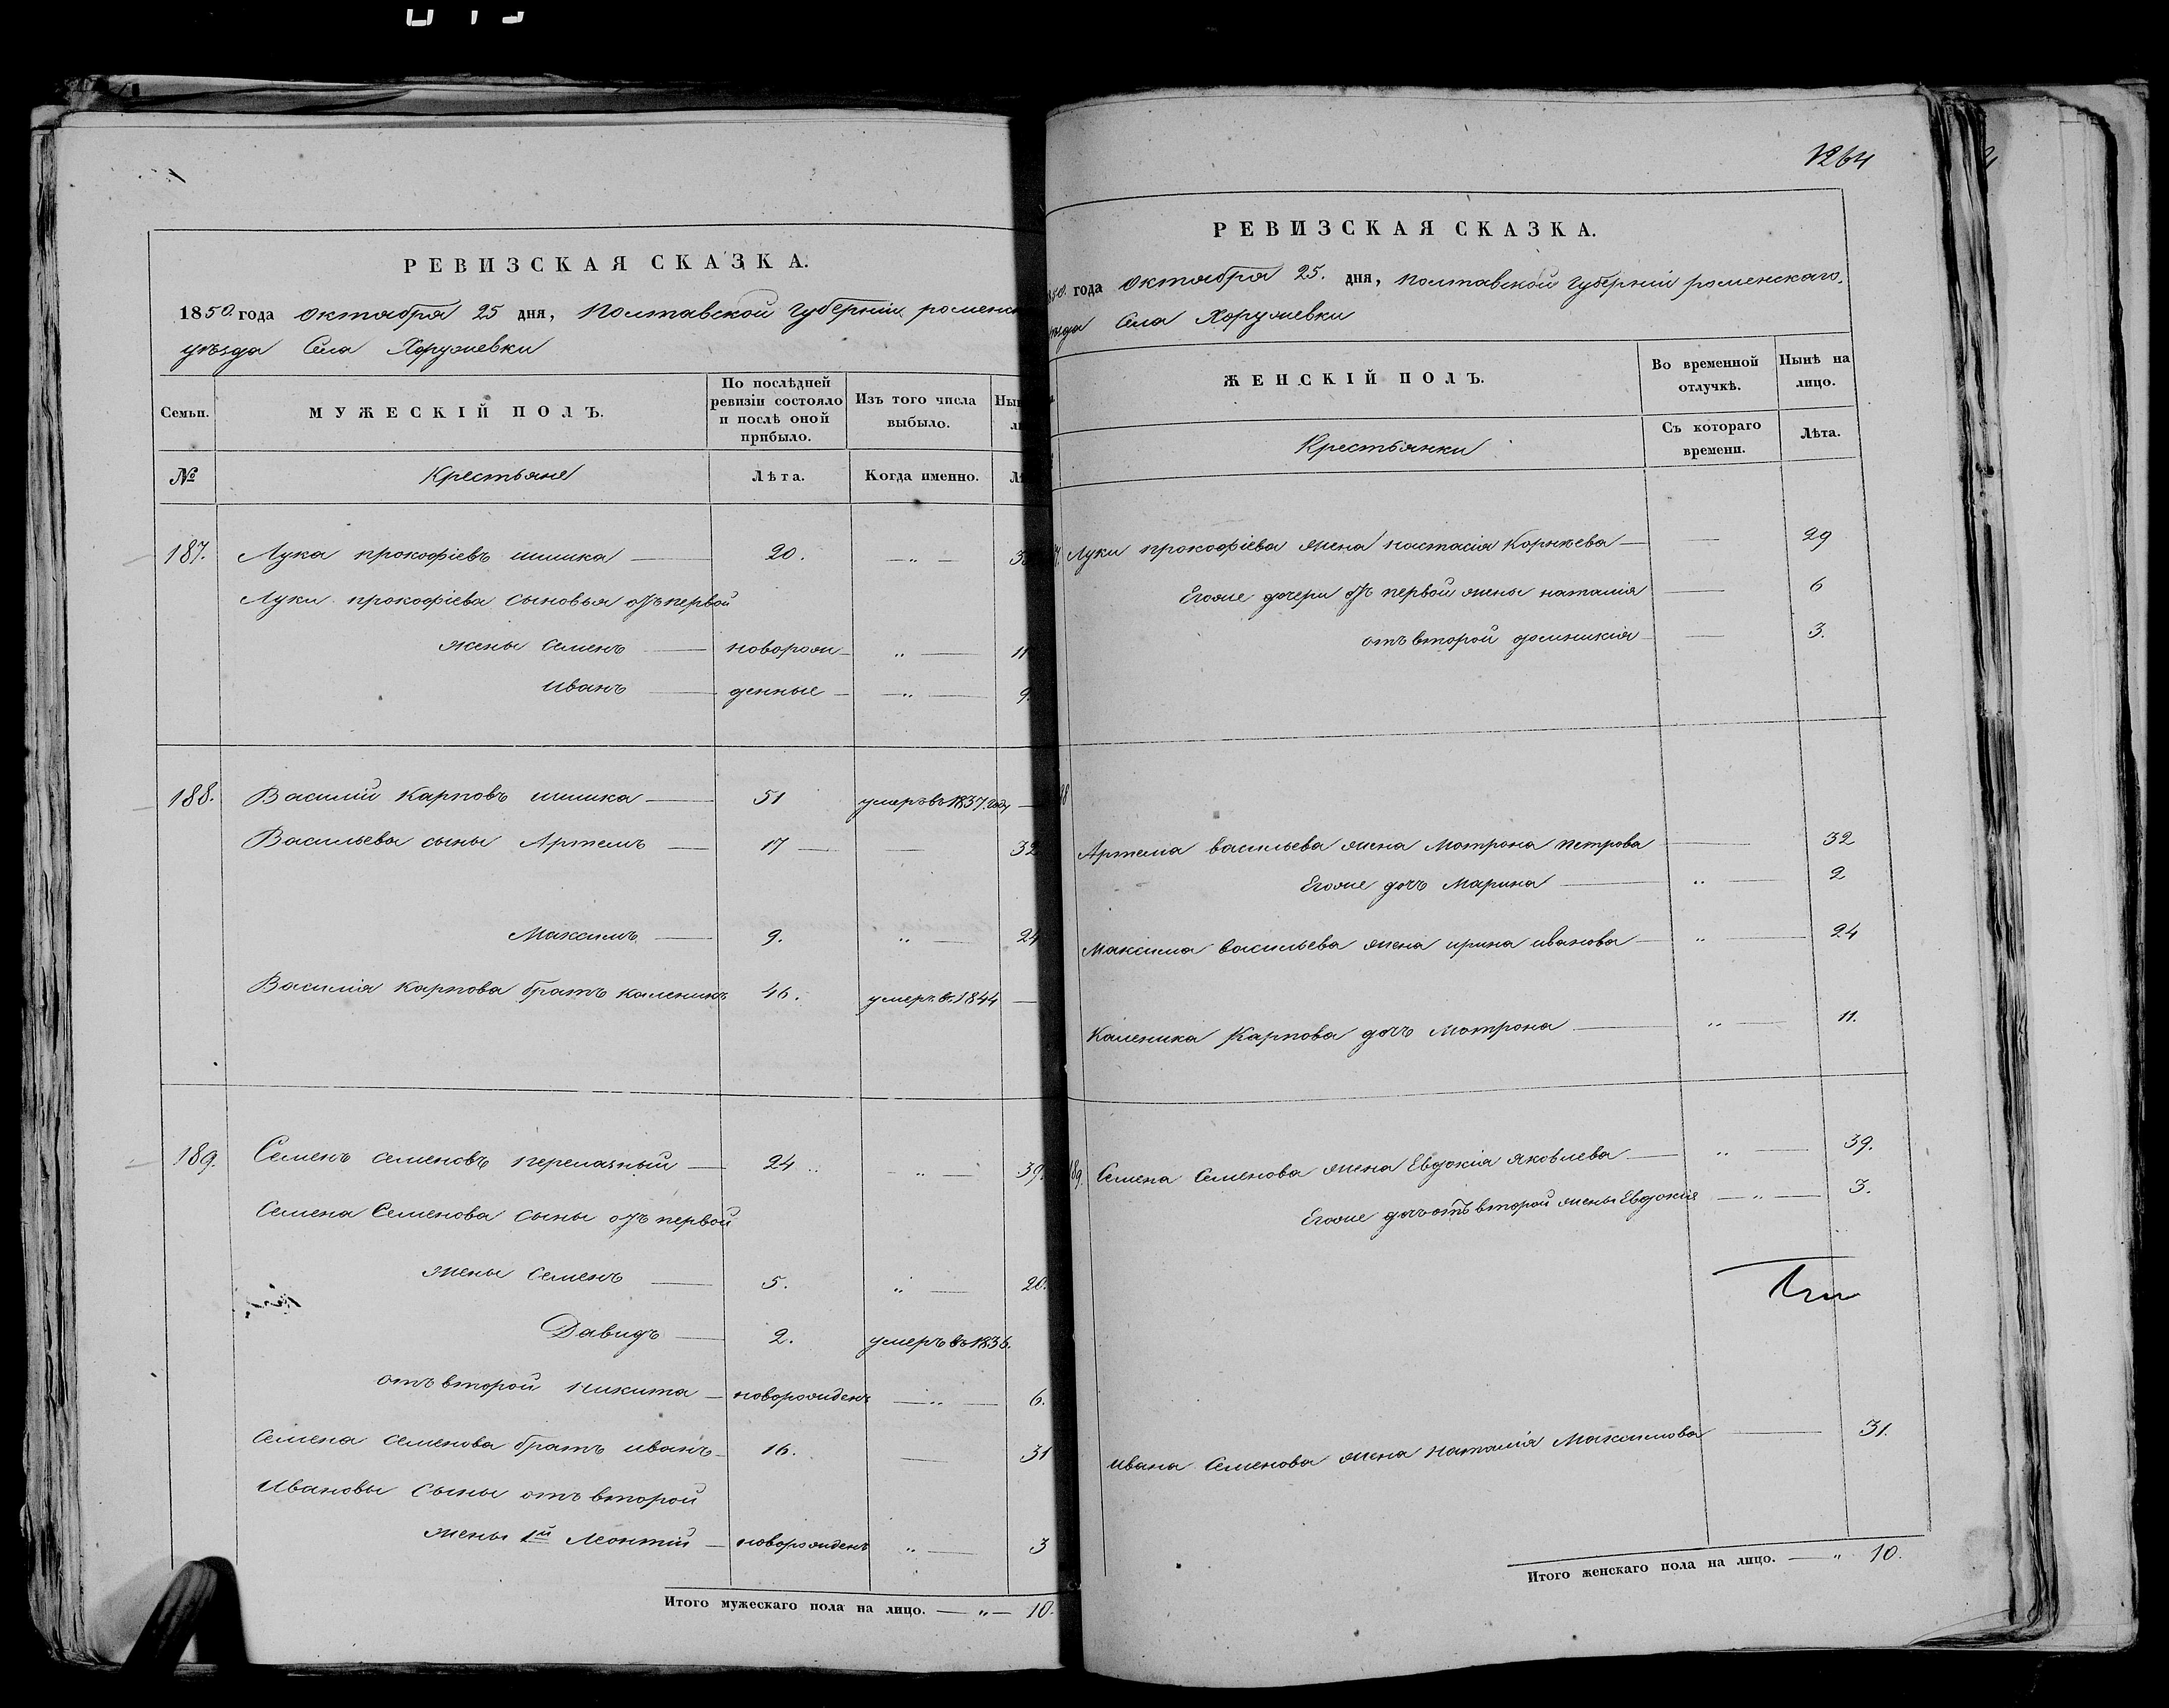 РЕВИЗСКАЯ СКАЗКА.
1850. года октября 25 дня, Полтавской губерніи роменск
уѣзда Села Хоружевки
Семьи.
МУЖЕСКІЙ ПОЛЪ.
По послѣдней ревизіи состояло и послѣ оной прибыло.
Изъ того числа выбыло.
Ны
№
Крестьяне
Лѣта.
Когда именно.
187. Лука прокофіевъ шишка — 20. — „ — 3
Луки прокофіева сыновья отъ первой
жены Семенъ — новорож — „ — 11
Иванъ — денные — „ — 9.
188. Василій Карповъ шишка — 51 умеръ въ 1837. году —
Васильевы сыны Артемъ — 17 — — 32
Максимъ — 9. „ — 24
Василія Карпова братъ каленикъ 46. умеръ в. 1844 —
189. Семенъ семеновъ перелазный — 24 „ „ — 39.
Семена Семенова сыны отъ первой
жены Семенъ — 5. „ — 20.
Давидъ — 2. умеръ въ 1836.
отъ второй Никита — новорожденъ — „ — 6.
Семена семенова братъ иванъ — 16. — 31
Ивановы сыны отъ второй
жены 1й Леонтій — новорожденъ „ — 3
Итого мужескаго пола на лицо. — „ — 10.
1264
РЕВИЗСКАЯ СКАЗКА.
850. года октября 25. дня, полтавской губерніи роменскаго.
ѣзда Села Хоружевки
ЖЕНСКІЙ ПОЛЪ.
Во временной отлучкѣ.
Нынѣ на лицо.
Крестьянки
Съ котораго времени.
Лѣта.
7. Луки прокофіева жена настасія Корнѣева — — 29
Егоже дочери отъ первой жены наталія — 6
отъ второй домникія — — 3.
88
Артема васильева жена Мотрона петрова — 32
Егоже дочь Марина — „ — 2
Максима васильева жена ирина иванова — „ — 24
Каленика Карпова дочь Мотрона — „ — 11.
189. Семена Семенова жена Евдокія яковлева — „ — 39.
Егоже дочь отъ второй жены Евдокія — „ — 3.
Ивана Семенова жена наталія Максимова — 31.
Итого женскаго пола на лицо. — „ 10.